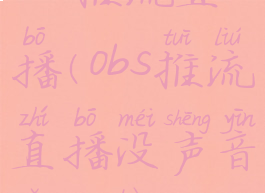 bō tuī liú
播(obs推流
zhí bō méi shēng yīn
直播没声音